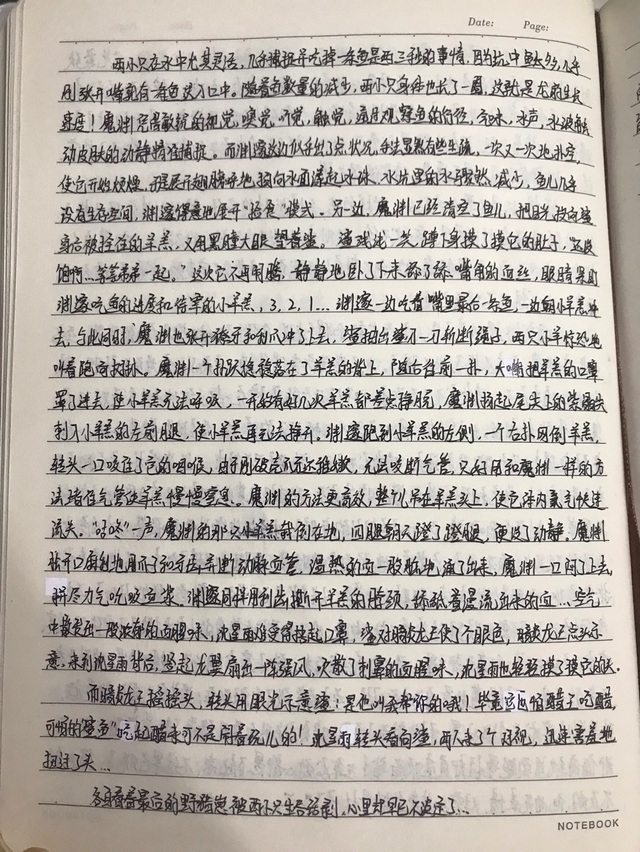 Date: Page:
两小只在水中尤其灵活,几乎捕捉并吃掉一条鱼是两三秒的事情,因为坑中鱼太多,几乎
刚张开嘴就有一条鱼送入口中。随着鱼数量的减少,两小只身体也长了一圈,这就是龙的生长
速度!魔渊凭借敏锐的视觉,嗅觉,听觉,触觉,通过观察鱼的行径,气味,水声,水波触
动皮肤的动静精准捕捉。而渊邃这边似乎出了点状况,手法显然有些生疏,一次又一次地扑空,
使它开始烦燥,于是展开翅膀呼地,拍向水面溅起水珠,水坑里的水骤然减少,鱼儿几乎
没有生存空间,渊邃得意地展开“拾食”模式。另一边,魔渊已经清空了鱼儿,把目光投向鎏
身后被拴住的羊羔,又用黑瞳大眼望着鎏。鎏戏谑一笑,蹲下身摸了摸它的肚子,“还没
饱啊…等等弟弟一起。”这次它不再闹腾,静静地卧了下来舔了舔嘴角的血丝,眼睛来回
渊邃吃鱼的进度和待宰的小羊羔,3,2,1…渊邃一边吃着嘴里最后一条鱼,一边朝小羊羔冲
去,与此同时,魔渊也张开獠牙和利爪冲了上去,鎏抽出鎏水一刀斩断绳子,两只小羊惊恐地
叫着跑向树林。魔渊一个扑跃稳稳落在了羊羔的背上,随后往前一扑,大嘴把羊羔的口鼻
罩了进去,使小羊羔无法呼吸,一开始有好几次羊羔都差点挣脱,魔渊扬起尾尖下的紫晶尖
刺入小羊羔的左前腿,使小羊羔再无法挣开。渊邃跑到小羊羔的左侧,一个右扑网倒羊羔,
转头一口咬住了它的咽喉,由于刚破壳不久还稚嫩,无法咬断气管,只好用和魔渊一样的方
法堵住气管使羊羔慢慢窒息。魔渊的方法更高效,整个儿吊在羊羔头上,使它体内氧气快速
流失。“咯咚”一声,魔渊的那只小羊羔就倒在地,四腿朝天蹬了蹬腿,便没了动静。魔渊
松开口后利地用爪子和牙齿弄断动脉血管,温热的血一股脑地涌了出来,魔渊一口闷了上去,
将尽力气吃吸血浆。渊邃同样用利齿撕开羊羔的脖颈,舔舐着漫流出来的血…空气
中散发出一股浓郁的血腥味,沈星雨难受得捂起口鼻,鎏对暗龙王使了个眼色,暗龙王点头示
意,来到沈星雨背后,竖起龙翼扇出一阵强风,吹散了刺鼻的血腥味,沈星雨也轻轻摸了摸它的头。
而暗龙王摇摇头,转头用眼光示意鎏:是他叫我帮你的哦!毕竟它
可怕的鎏鱼“吃起醋来可不是闹着玩儿的!沈星雨转头看向鎏,两人来了个对视,迅速害羞地
扭过了头…
各自看着最后的野猪崽被两小只生吞活剥,心里却早已不淡定了…
NOTEBOOK